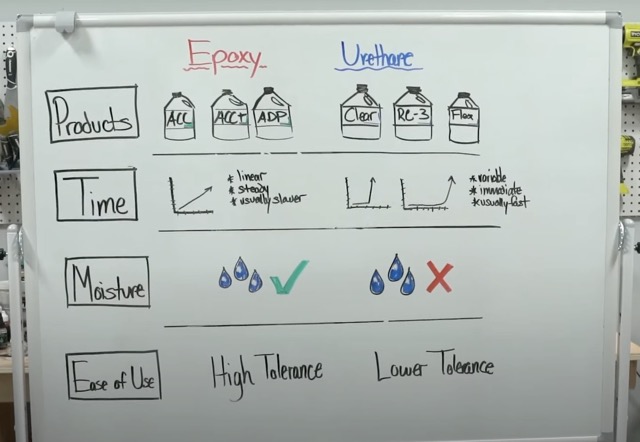 Epoxy Urethane
Products ACC ACC+ ADP Clear RC-3 Flex
Time
* linear
* steady
* usually slower
* variable
* immediate
* usually fast
Moisture
Ease of Use High Tolerance Lower Tolerance